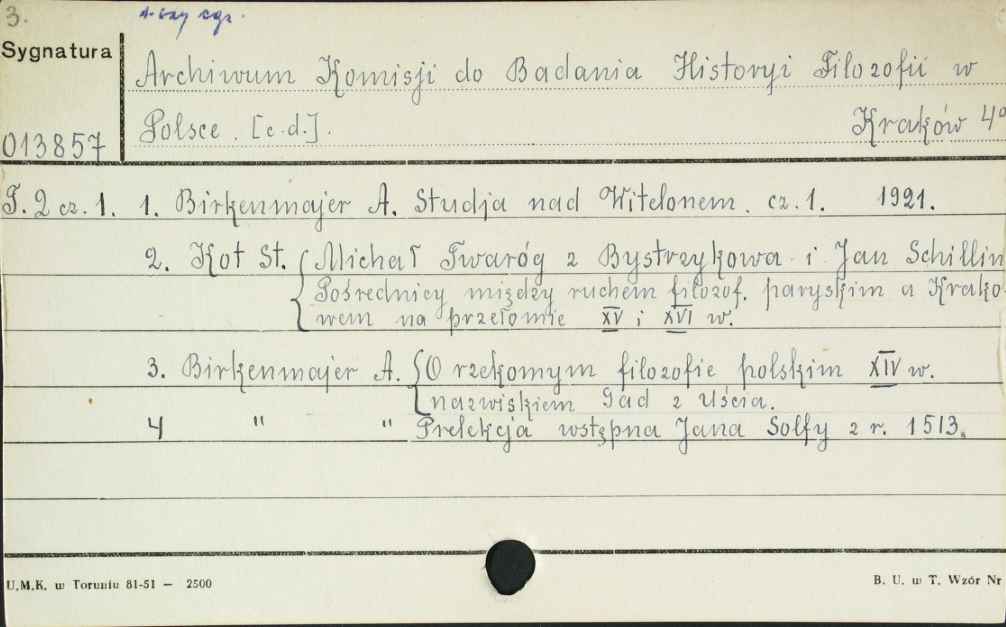 3.
Sygnatura
Archiwum Komisji do Badania Historyi Filozofii w
Polsce. [c.d.]. Kraków 4°
013857
T. 2 cz. 1. 1. Birkenmajer A. Studja nad Witelonem. cz. 1. 1921.
2. Kot St. Michał Twaróg z Bystrzykowa i Jan Schillin
Pośrednicy między ruchem filozof. paryskim a Krako-
wem na przełomie XV i XVI w.
3. Birkenmajer A. O rzekomym filozofie polskim XIV w.
nazwiskiem Gad z Uścia.
4 " " Prelekcja wstępna Jana Solfy z r. 1513.
U.M.K. w Toruniu 81-51 — 2500 B. U. w T. Wzór Nr